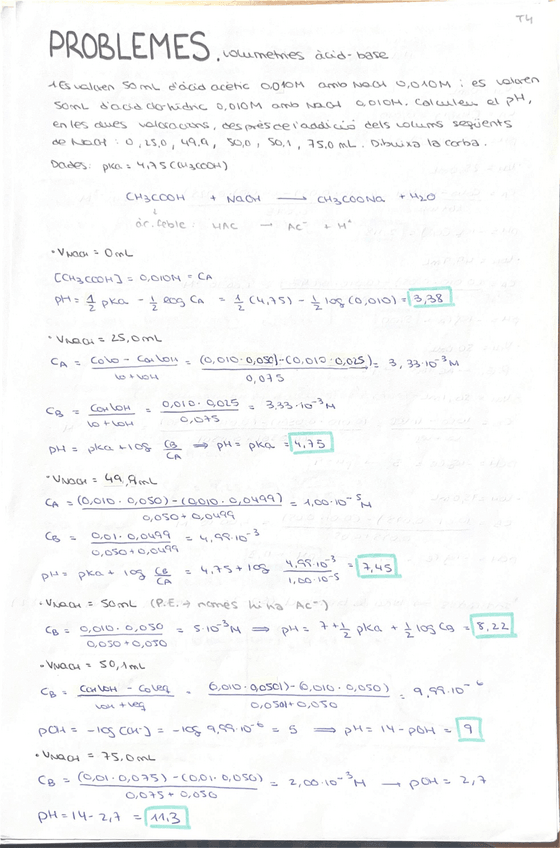 T4
PROBLEMES. volumetries àcid-base
1. Es valoren 50mL d'àcid acètic 0,010M amb NaOH 0,010M i es valoren
50mL d'àcid clorhídric 0,010M amb NaOH 0,010M. Calculeu el pH,
en les dues valoracions, després de l'addició dels volums següents
de NaOH: 0, 25,0, 49,9, 50,0, 50,1, 75,0 mL. Dibuixa la corba.
Dades: pKa = 4,75 (CH3COOH)
CH3COOH + NaOH → CH3COONa + H2O
↓
àc. feble: HAc → Ac⁻ + H⁺
· VNaOH = 0mL
[CH3COOH] = 0,010M = CA
pH = 1/2 pKa - 1/2 log CA = 1/2 (4,75) - 1/2 log (0,010) = 3,38
· VNaOH = 25,0mL
CA = (CoVo - COHVOH)/(Vo + VOH) = ((0,010·0,050)-(0,010·0,025))/0,075 = 3,33·10⁻³M
CB = COHVOH/(Vo + VOH) = (0,010·0,025)/0,075 = 3,33·10⁻³M
pH = pKa + log CB/CA ⇒ pH = pKa = 4,75
· VNaOH = 49,9mL
CA = ((0,010·0,050)-(0,010·0,0499))/(0,050+0,0499) = 1,00·10⁻⁵M
CB = (0,01·0,0499)/(0,050+0,0499) = 4,99·10⁻³
pH = pKa + log CB/CA = 4,75 + log (4,99·10⁻³)/(1,00·10⁻⁵) = 7,45
· VNaOH = 50mL (P.E. → només hi ha Ac⁻)
CB = (0,010·0,050)/(0,050+0,050) = 5·10⁻³M ⇒ pH = 7 + 1/2 pKa + 1/2 log CB = 8,22
· VNaOH = 50,1mL
CB = (COHVOH - CoVeq)/(VOH + Veq) = ((0,010·0,0501)-(0,010·0,050))/(0,0501+0,050) = 9,99·10⁻⁶
pOH = -log [OH⁻] = -log 9,99·10⁻⁶ = 5 ⇒ pH = 14 - pOH = 9
· VNaOH = 75,0mL
CB = ((0,01·0,075)-(0,01·0,050))/(0,075+0,050) = 2,00·10⁻³M → pOH = 2,7
pH = 14 - 2,7 = 11,3